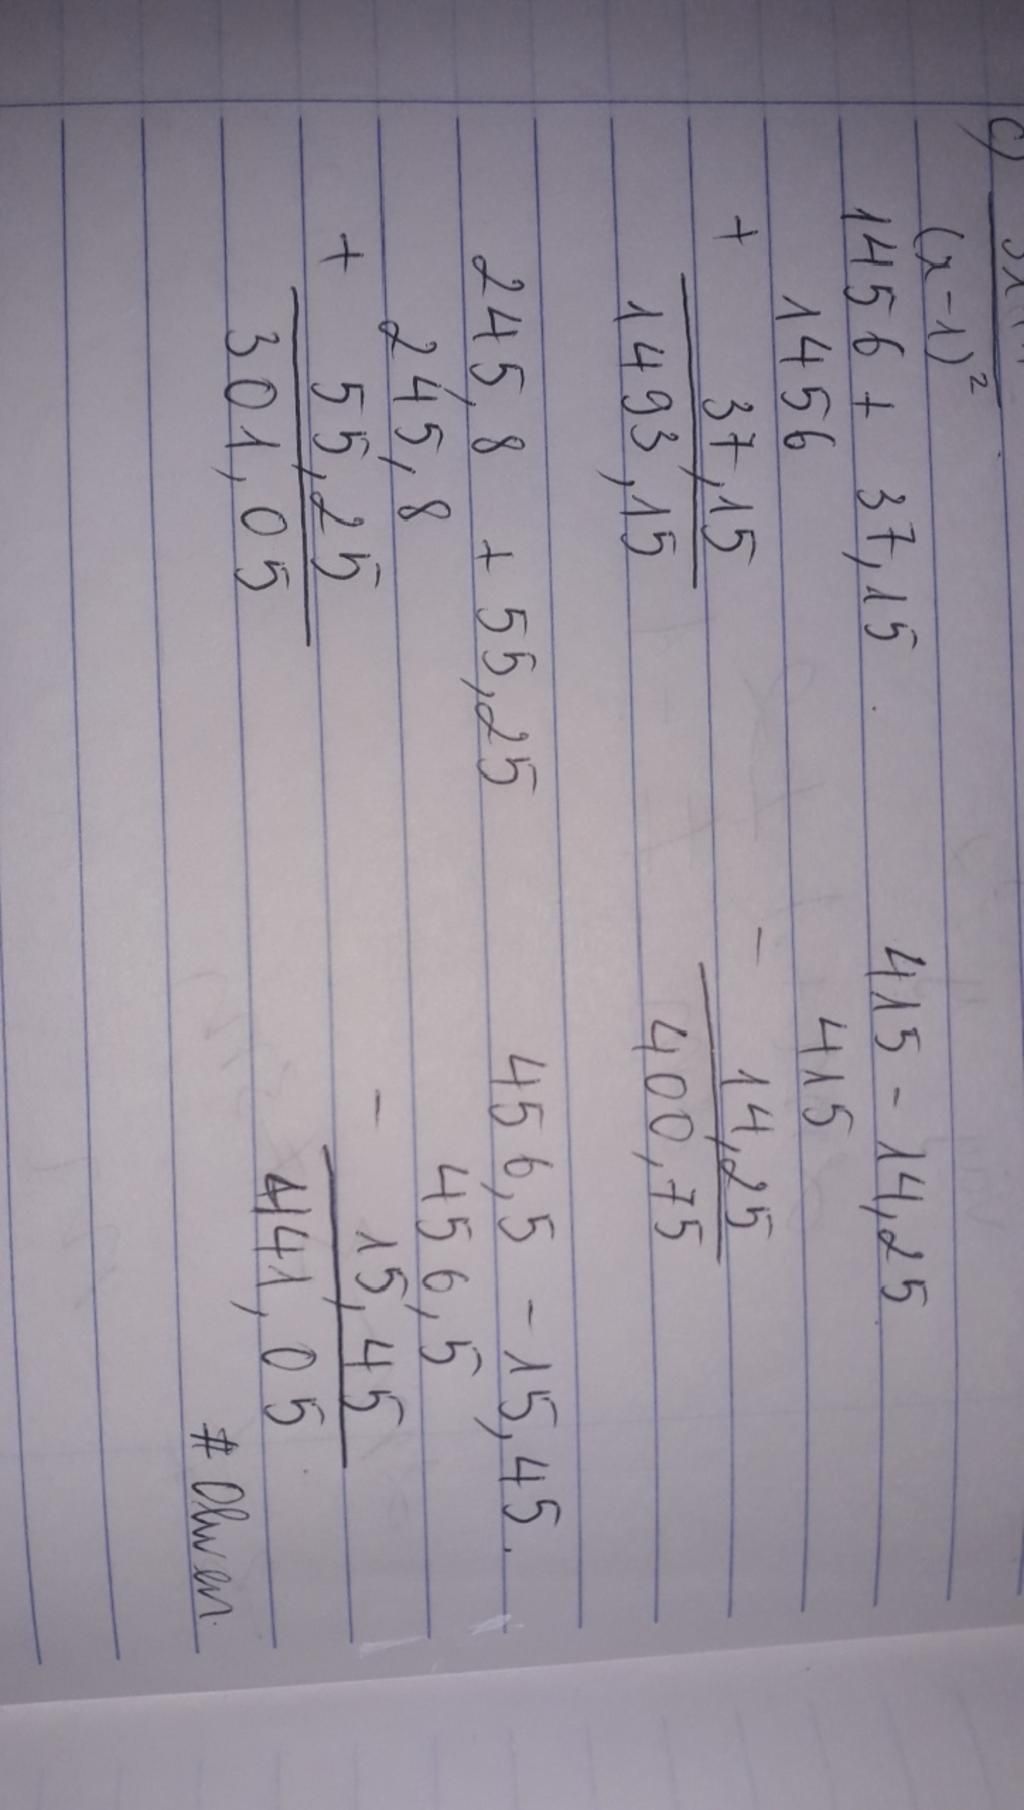 c)
(x-1)²
1456 + 37,15
1456
+ 37,15
1493,15
415 - 14,25
415
- 14,25
400,75
245,8 + 55,25
245,8
+ 55,25
301,05
456,5 - 15,45.
456,5
- 15,45
441,05
# Olwen